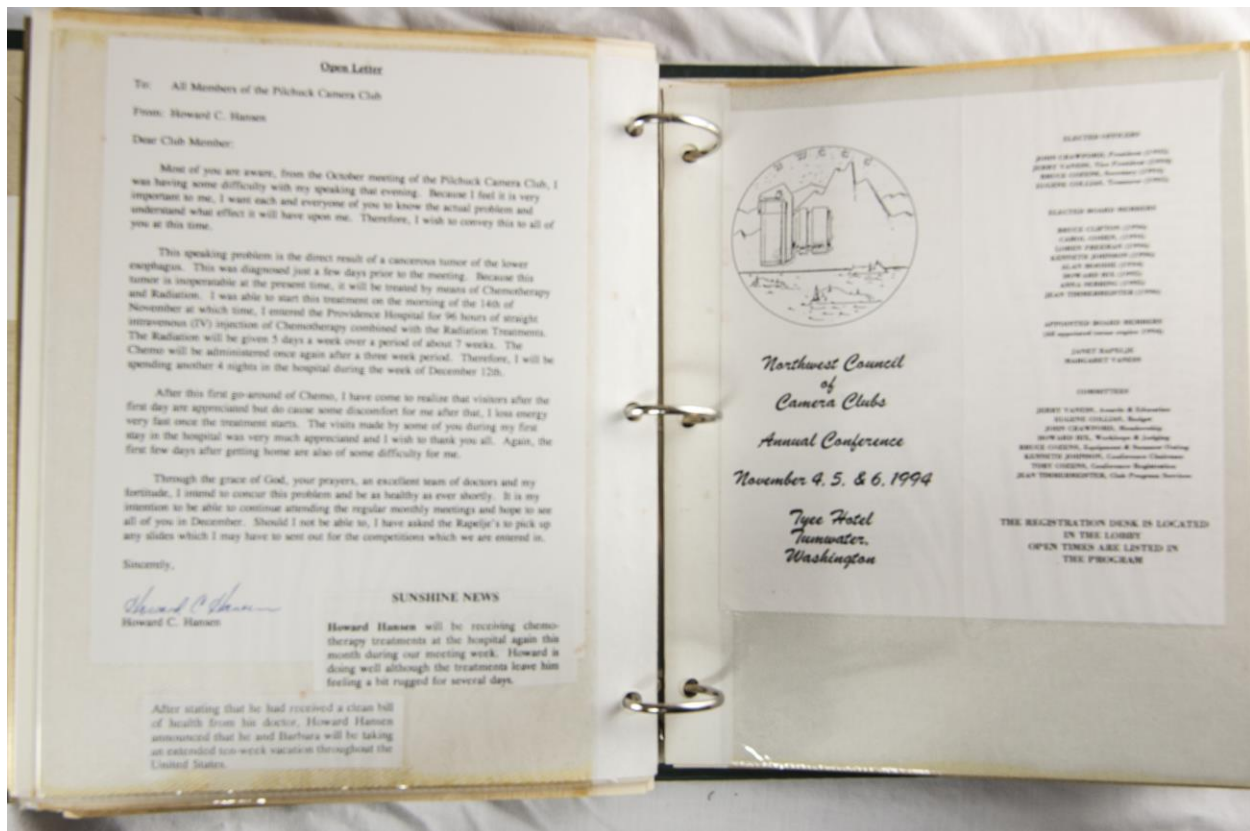 Open Letter
To: All Members of the Pilchuck Camera Club
From: Howard C. Hansen
Dear Club Member:
Most of you are aware, from the October meeting of the Pilchuck Camera Club, I
was having some difficulty with my speaking that evening. Because I feel it is very
important to me, I want each and everyone of you to know the actual problem and
understand what effect it will have upon me. Therefore, I wish to convey this to all of
you at this time.
This speaking problem is the direct result of a cancerous tumor of the lower
esophagus. This was diagnosed just a few days prior to the meeting. Because this
tumor is inoperatable at the present time, it will be treated by means of Chemotherapy
and Radiation. I was able to start this treatment on the morning of the 14th of
November at which time, I entered the Providence Hospital for 96 hours of straight
intravenous (IV) injection of Chemotherapy combined with the Radiation Treatments.
The Radiation will be given 5 days a week over a period of about 7 weeks. The
Chemo will be administered once again after a three week period. Therefore, I will be
spending another 4 nights in the hospital during the week of December 12th.
After this first go-around of Chemo, I have come to realize that visitors after the
first day are appreciated but do cause some discomfort for me after that, I loss energy
very fast once the treatment starts. The visits made by some of you during my first
stay in the hospital was very much appreciated and I wish to thank you all. Again, the
first few days after getting home are also of some difficulty for me.
Through the grace of God, your prayers, an excellent team of doctors and my
fortitude, I intend to concur this problem and be as healthy as ever shortly. It is my
intention to be able to continue attending the regular monthly meetings and hope to see
all of you in December. Should I not be able to, I have asked the Rapelje's to pick up
any slides which I may have to sent out for the competitions which we are entered in.
Sincerely,
Howard C Hansen
Howard C. Hansen
SUNSHINE NEWS
Howard Hansen will be receiving chemo-
therapy treatments at the hospital again this
month during our meeting week. Howard is
doing well although the treatments leave him
feeling a bit rugged for several days.
After stating that he had received a clean bill
of health from his doctor, Howard Hansen
announced that he and Barbara will be taking
an extended ten-week vacation throughout the
United States.
N W C C C
Northwest Council
of
Camera Clubs
Annual Conference
November 4, 5, & 6, 1994
Tyee Hotel
Tumwater,
Washington
ELECTED OFFICERS
JOHN CRAWFORD, President (1995)
JERRY VANEK, Vice President (1994)
BRUCE COZENS, Secretary (1994)
EUGENE COLLIAS, Treasurer (1995)
ELECTED BOARD MEMBERS
BRUCE CLIFTON
CAROL
LOREN FREEMAN
KENNETH JOHNSON
ALAN
HOWARD
ANNA
JEAN TIMMERMEISTER
APPOINTED BOARD MEMBERS
(All appointed terms expire 1994)
JANET RAPELJE
MARGARET
COMMITTEES
Awards & Education
EUGENE COLLIAS, Budget
JOHN CRAWFORD, Membership
HOWARD Workshops & Judging
BRUCE COZENS, Equipment & Summer Outing
KENNETH JOHNSON, Conference Chairman
TORY COZENS, Conference Registration
JEAN TIMMERMEISTER, Club Program Services
THE REGISTRATION DESK IS LOCATED
IN THE LOBBY
OPEN TIMES ARE LISTED IN
THE PROGRAM